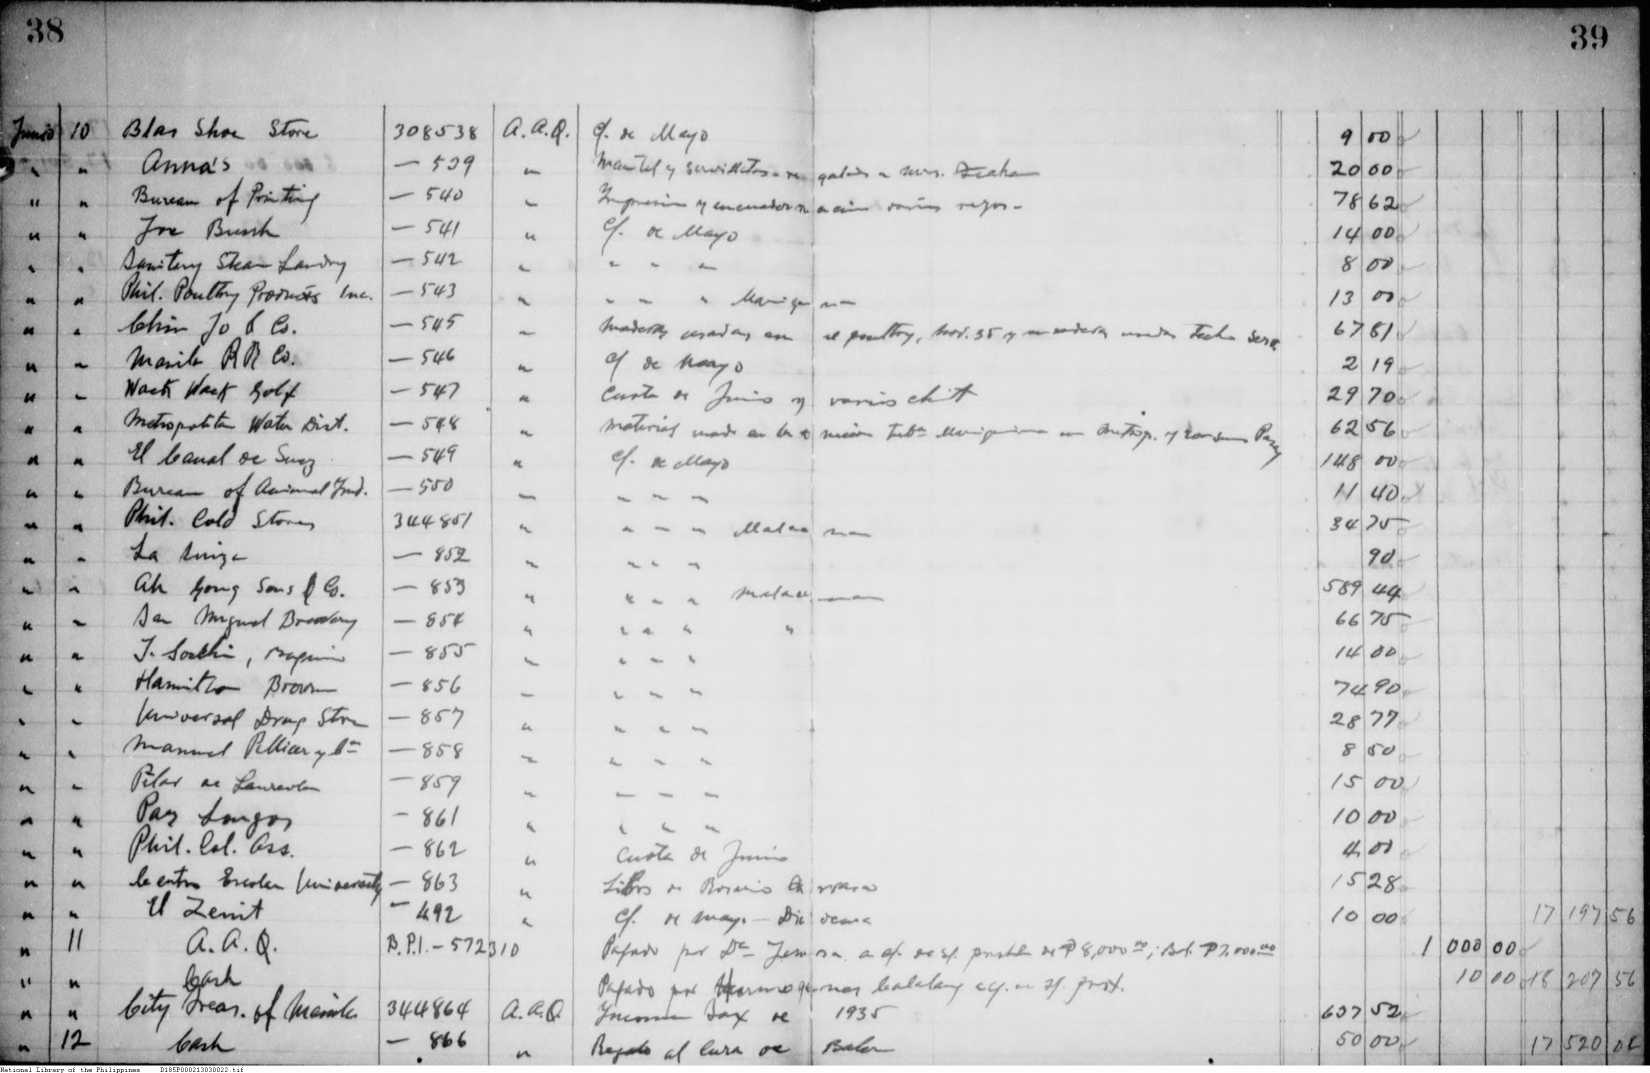 38
39
Junio 10 Blas Shoe Store 308538 A.A.Q. C/. de Mayo 9 00
" " Anna's — 539 " Mantel y servilletas regalados a Mrs. 20 00
" " Bureau of Printing — 540 " Impresion y encuadernacion varios 78 62
" " Joe Bush — 541 " C/. de Mayo 14 00
" " Sanitary Steam Landry — 542 " " " " 8 00
" " Phil. Poultry Products Inc. — 543 " " " " 13 00
" " Chin Jo & Co. — 545 " el poultry, Nov. 35 y 67 81
" " Manila RR Co. — 546 " C/ de Mayo 2 19
" " Wack Wack Golf — 547 " Cuota de Junio y varios chit 29 70
" " Metropolitan Water Dist. — 548 " Material usado en 62 56
" " El Canal de Suez — 549 " C/. de Mayo 148 00
" " Bureau of Animal Ind. — 550 " " " " 11 40
" " Phil. Cold Stores 344851 " " " " 34 75
" " La Suiza — 852 " " " " 90
" " Ah Gong Sons & Co. — 853 " " " " 589 44
" " San Miguel Brewery — 854 " " " " " 66 75
" " — 855 " " " " 14 00
" " Hamilton Brown — 856 " " " " 74 90
" " Universal Drug Store — 857 " " " " 28 77
" " Manuel Pellicer y Ca — 858 " " " " 8 50
" " Pilar de — 859 " " " " 15 00
" " Paz Longos — 861 " " " " 10 00
" " Phil. Col. Ass. — 862 " Cuota de Junio 4 00
" " Centro Escolar University — 863 " Libros de Rosario 15 28
" " El Zenit — 492 " C/. de Mayo 10 00 17 197 56
" 11 A.A.Q. B.P.I. - 572310 Pagado por Da a c/. de 8,000 00; Bal. ₱7,000 00 1 000 00
" " Cash Pagado por Hermogenes 10 00 18 207 56
" " City Treas. of Manila 344864 A.A.Q Income Tax de 1935 637 52
" 12 Cash — 866 " Regalo al Cura de Baler 50 00 17 520 04
National Library of the Philippines D185P000213030022.tif